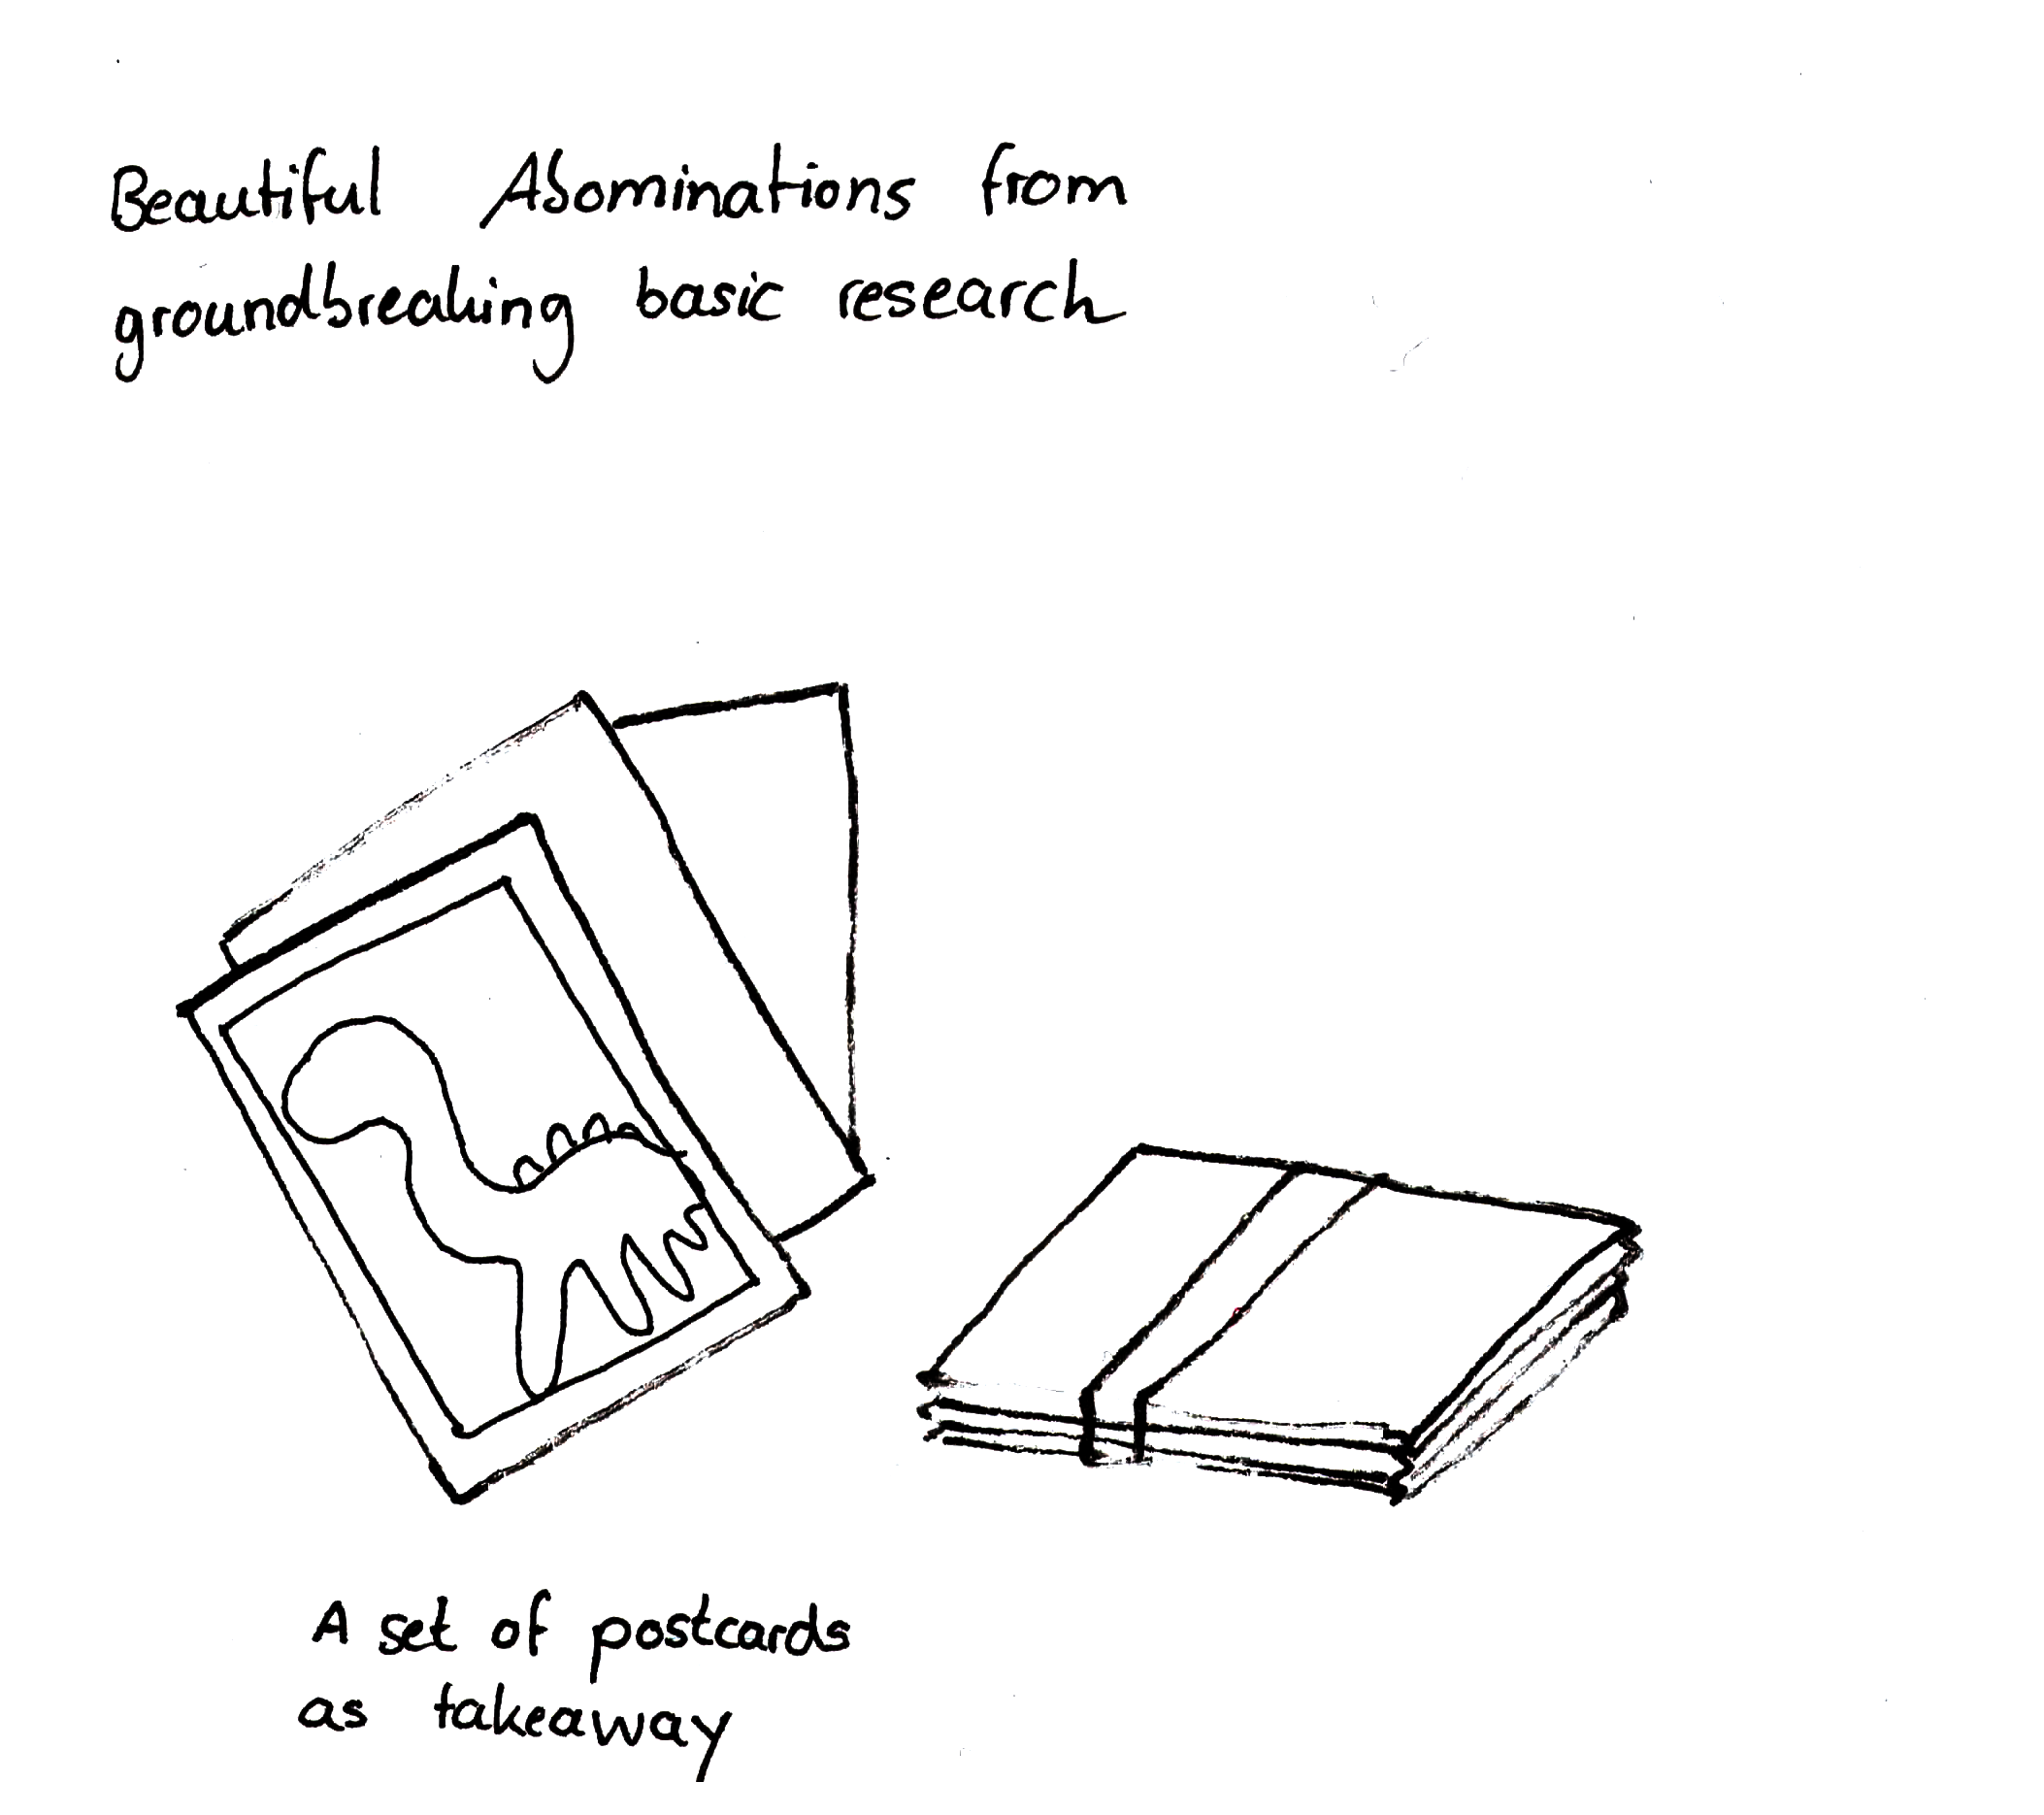 Beautiful Abominations from
groundbreaking basic research
A set of postcards
as takeaway